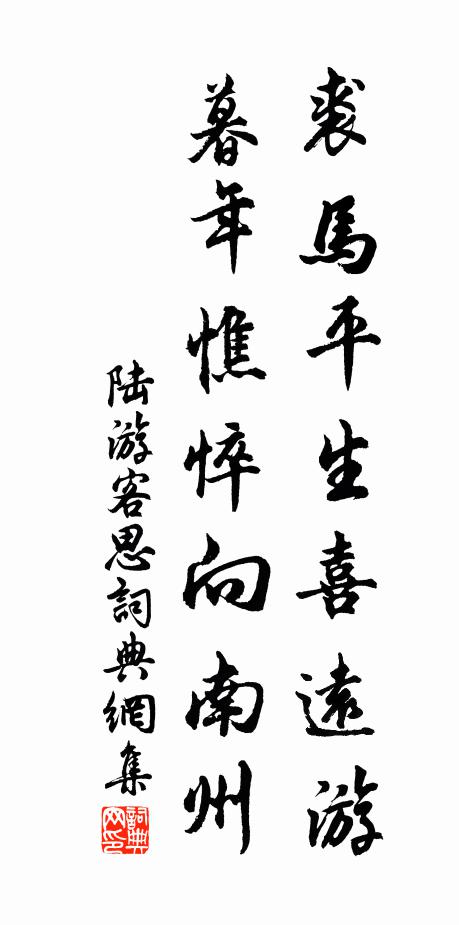 裘馬平生喜遠游
暮年憔悴向南州
陆游客思詞典網集
詞典
网印